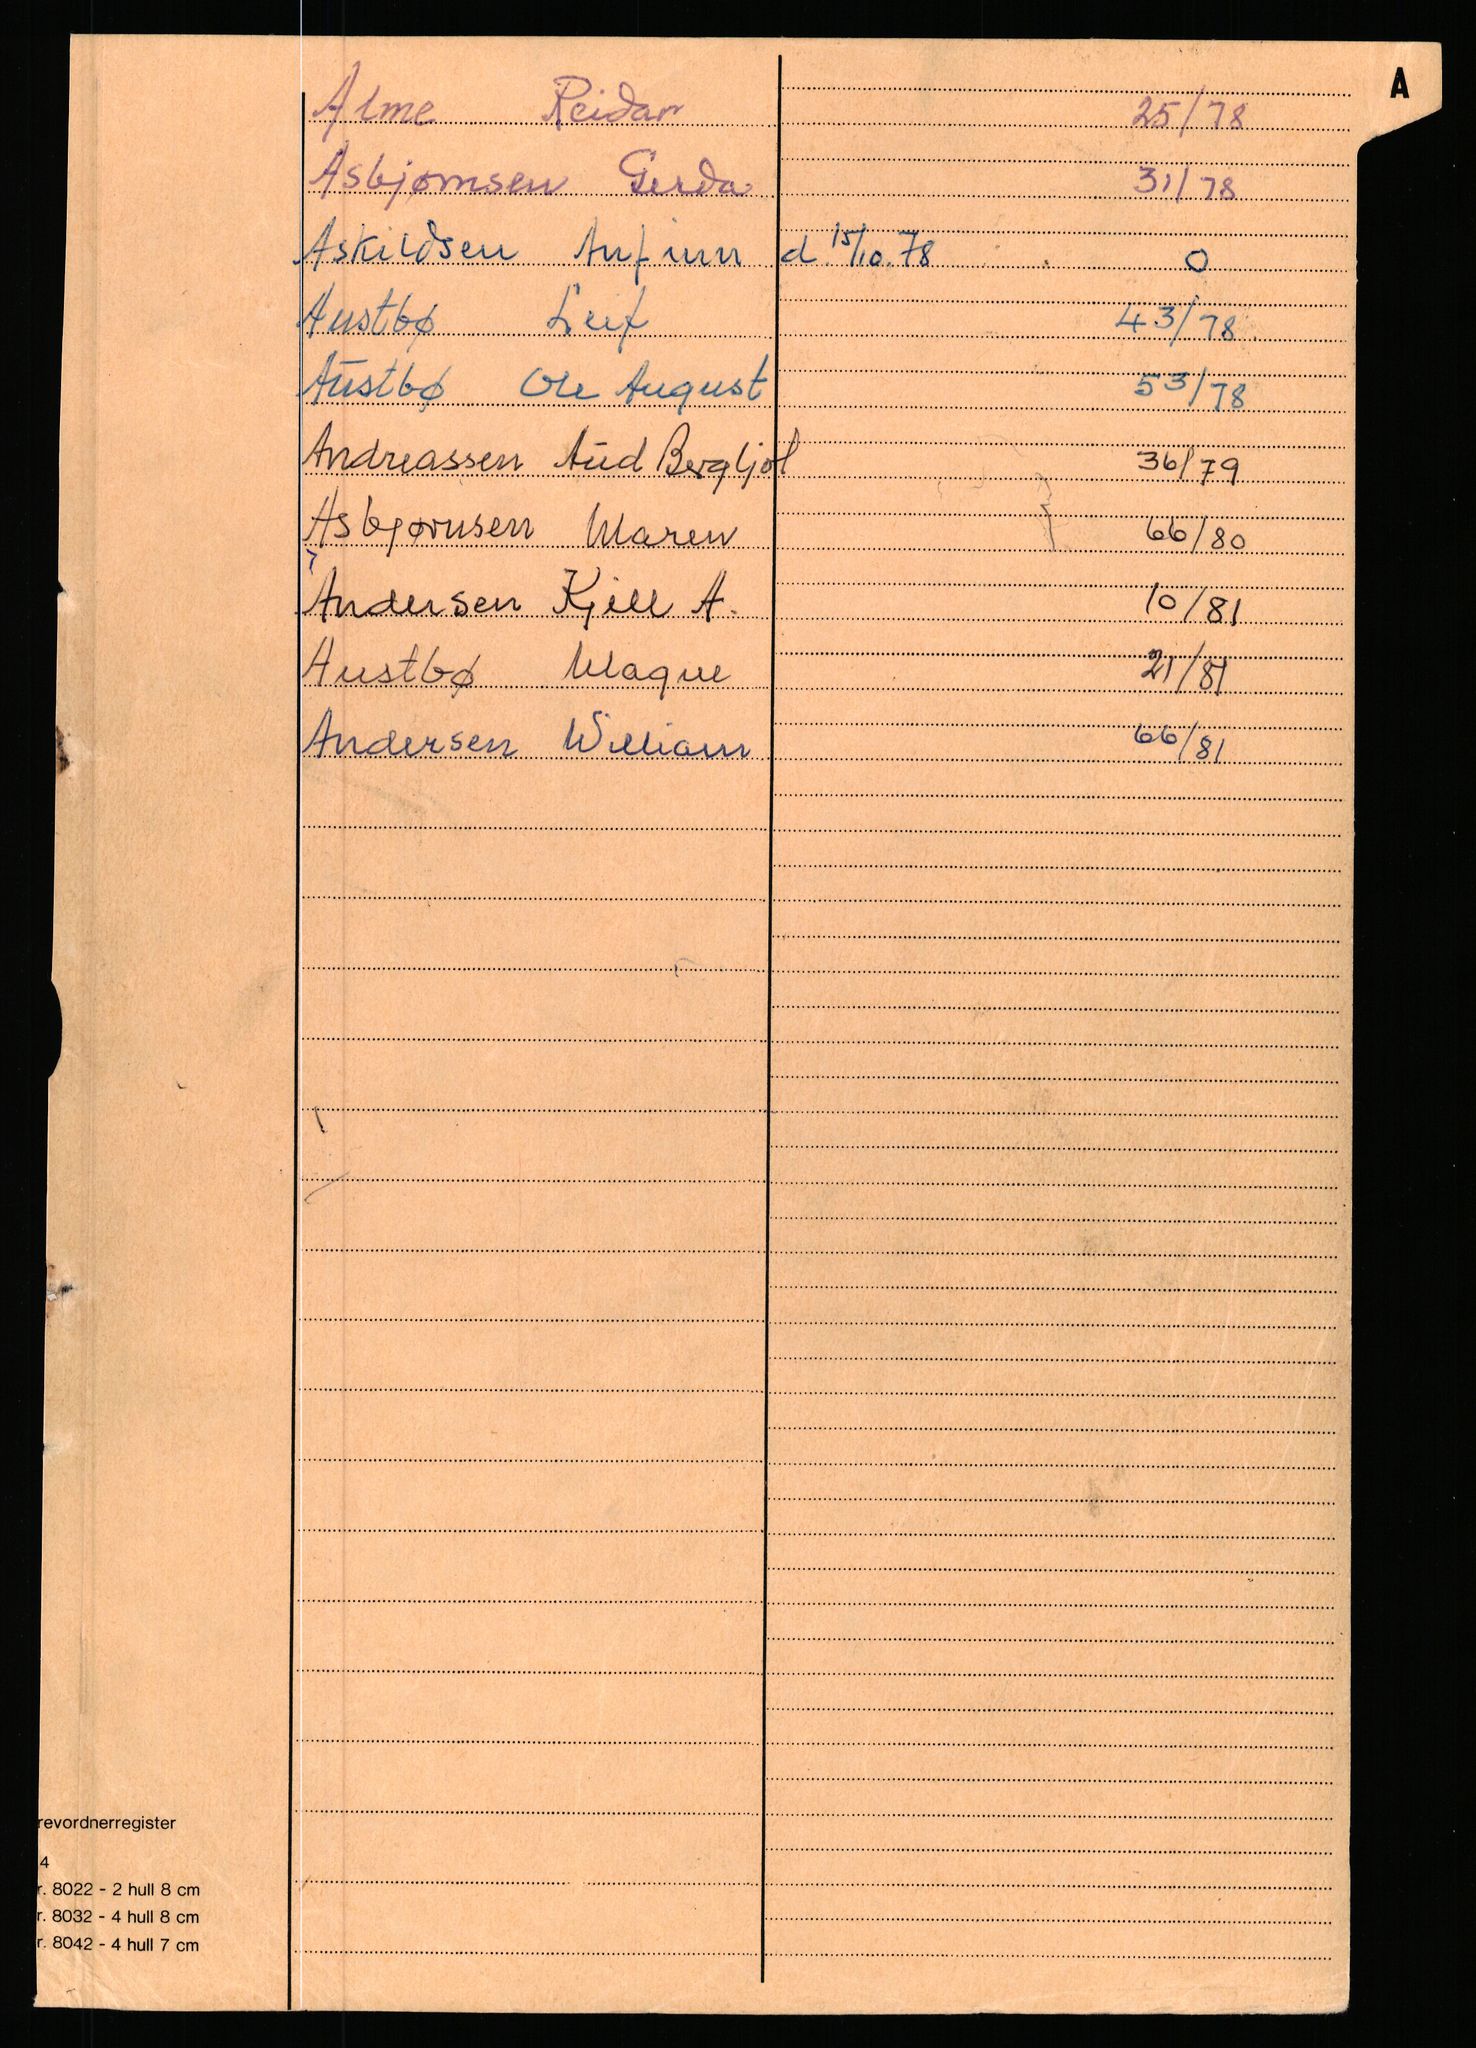 A
Alme Reidar 25/78
Asbjørnsen Gerda 31/78
Askildsen Anfinn d. 15/10.78 0
Austbø Leif 43/78
Austbø Ole August 53/78
Andreassen Aud Bergljot 36/79
Asbjørnsen Maren 66/80
Andersen Kjell A. 10/81
Austbø Magne 21/81
Andersen William 66/81
revordnerregister
4
r. 8022 - 2 hull 8 cm
r. 8032 - 4 hull 8 cm
r. 8042 - 4 hull 7 cm